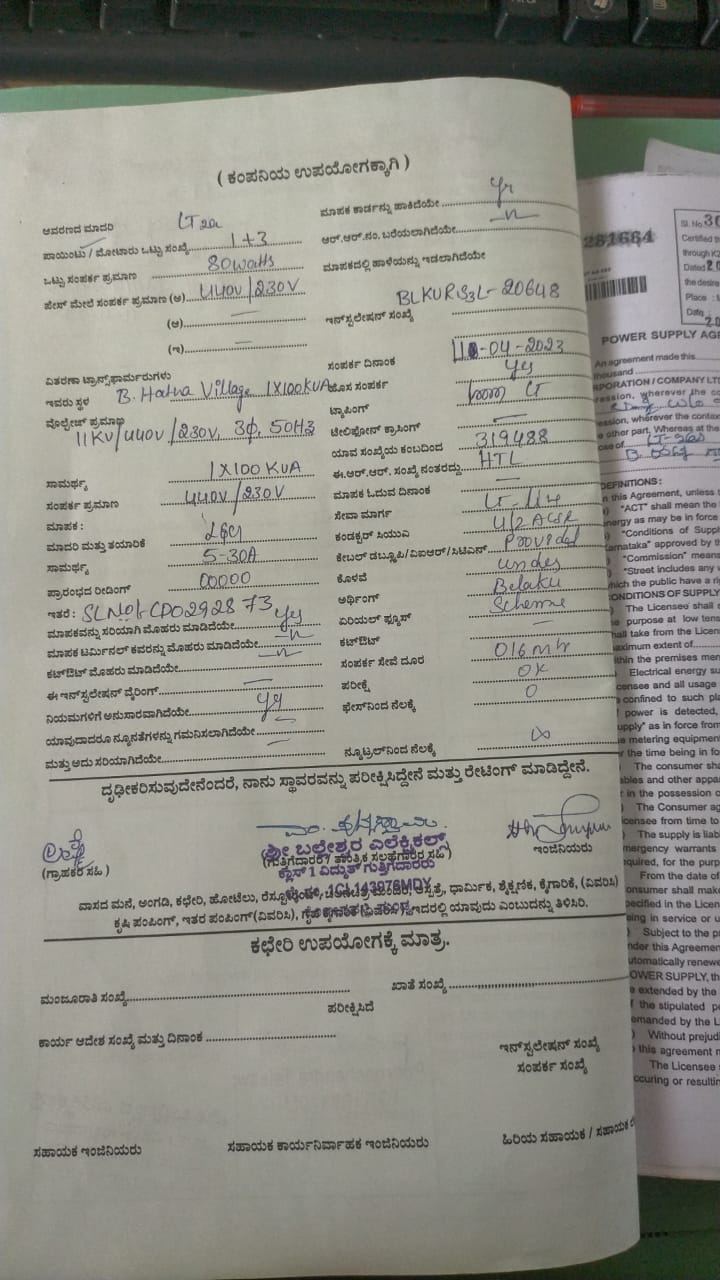 ( ಕಂಪನಿಯ ಉಪಯೋಗಕ್ಕಾಗಿ )
ಆವರಣದ ಮಾದರಿ LT2a
ಪಾಯಿಂಟು / ಮೋಟಾರು ಒಟ್ಟು ಸಂಖ್ಯೆ 1+3
ಒಟ್ಟು ಸಂಪರ್ಕ ಪ್ರಮಾಣ 80watts
ಪೇಸ್ ಮೇಲೆ ಸಂಪರ್ಕ ಪ್ರಮಾಣ (ಅ) 440V/230V
(ಆ) —
(ಇ) —
ವಿತರಣಾ ಟ್ರಾನ್ಸ್‌ಫಾರ್ಮರುಗಳು
ಇವರು ಸ್ಥಳ B. Hatna Village 1X100KVA
ವೊಲ್ಟೇಜ್ ಪ್ರಮಾಣ
11KV/440V/230V, 3φ, 50HZ
ಸಾಮರ್ಥ್ಯ 1X100KVA
ಸಂಪರ್ಕ ಪ್ರಮಾಣ 440V/230V
ಮಾಪಕ :
ಮಾದರಿ ಮತ್ತು ತಯಾರಿಕೆ L&G
ಸಾಮರ್ಥ್ಯ 5-30A
ಪ್ರಾರಂಭದ ರೀಡಿಂಗ್ 00000
ಇತರೆ : SLNO:-CP0292873
ಮಾಪಕವನ್ನು ಸರಿಯಾಗಿ ಮೊಹರು ಮಾಡಿದೆಯೇ yes
ಮಾಪಕ ಟರ್ಮಿನಲ್ ಕವರನ್ನು ಮೊಹರು ಮಾಡಿದೆಯೇ —"—
ಕಟ್‌ಔಟ್ ಮೊಹರು ಮಾಡಿದೆಯೇ —"—
ಈ ಇನ್‌ಸ್ಟಲೇಷನ್ ವೈರಿಂಗ್ —
ನಿಯಮಗಳಿಗೆ ಅನುಸಾರವಾಗಿದೆಯೇ yes
ಯಾವುದಾದರೂ ನ್ಯೂನತೆಗಳನ್ನು ಗಮನಿಸಲಾಗಿದೆಯೇ —
ಮತ್ತು ಅದು ಸರಿಯಾಗಿದೆಯೇ —
ಮಾಪಕ ಕಾರ್ಡನ್ನು ಹಾಕಿದೆಯೇ
ಆರ್.ಆರ್.ನಂ. ಬರೆಯಲಾಗಿದೆಯೇ —"—
ಮಾಪಕದಲ್ಲಿ ಹಾಳೆಯನ್ನು ಇಡಲಾಗಿದೆಯೇ
ಇನ್‌ಸ್ಟಲೇಷನ್ ಸಂಖ್ಯೆ BLKURS3L-20648
ಸಂಪರ್ಕ ದಿನಾಂಕ -04-2023
ಹೊಸ ಸಂಪರ್ಕ yes
ಟ್ಯಾಪಿಂಗ್ from LT
ಟೆಲಿಫೋನ್ ಕ್ರಾಸಿಂಗ್ —
ಯಾವ ಸಂಖ್ಯೆಯ ಕಂಬದಿಂದ 319488
ಈ.ಆರ್.ಆರ್. ಸಂಖ್ಯೆ ನಂತರದ್ದು HTL
ಮಾಪಕ ಓದುವ ದಿನಾಂಕ —
ಸೇವಾ ಮಾರ್ಗ LT-line
ಕಂಡಕ್ಟರ್ ಸಿಯುಎ ACSR
ಕೇಬಲ್ ಡಬ್ಲ್ಯೂಪಿ/ವಿಐಆರ್/ಸಿಟಿಎನ್ Provided
ಕೊಳವೆ under
ಅರ್ಥಿಂಗ್ Belaku
ಏರಿಯಲ್ ಫ್ಯೂಸ್ Scheme
ಕಟ್‌ಔಟ್ —
ಸಂಪರ್ಕ ಸೇವೆ ದೂರ 016 mtr
ಪರೀಕ್ಷೆ OK
ಫೇಸ್‌ನಿಂದ ನೆಲಕ್ಕೆ 0
ನ್ಯೂಟ್ರಲ್‌ನಿಂದ ನೆಲಕ್ಕೆ ∞
ದೃಢೀಕರಿಸುವುದೇನೆಂದರೆ, ನಾನು ಸ್ಥಾವರವನ್ನು ಪರೀಕ್ಷಿಸಿದ್ದೇನೆ ಮತ್ತು ರೇಟಿಂಗ್ ಮಾಡಿದ್ದೇನೆ.
(ಗ್ರಾಹಕರ ಸಹಿ )
ಶ್ರೀ ಬಲ್ಲೇಶ್ವರ ಎಲೆಕ್ಟ್ರಿಕಲ್ಸ್
(ಗುತ್ತಿಗೆದಾರರ / ತಾಂತ್ರಿಕ ಸಲಹೆಗಾರರ ಸಹಿ )
ಕ್ಲಾಸ್ 1 ವಿದ್ಯುತ್ ಗುತ್ತಿಗೆದಾರರು
ಇಂಜಿನಿಯರು
ವಾಸದ ಮನೆ, ಅಂಗಡಿ, ಕಛೇರಿ, ಹೋಟೆಲು, ಆಸ್ಪತ್ರೆ, ಧಾರ್ಮಿಕ, ಶೈಕ್ಷಣಿಕ, ಕೈಗಾರಿಕೆ, (ವಿವರಿಸಿ)
ಕೃಷಿ ಪಂಪಿಂಗ್, ಇತರ ಪಂಪಿಂಗ್(ವಿವರಿಸಿ), ಇದರಲ್ಲಿ ಯಾವುದು ಎಂಬುದನ್ನು ತಿಳಿಸಿರಿ.
ಕಛೇರಿ ಉಪಯೋಗಕ್ಕೆ ಮಾತ್ರ.
ಮಂಜೂರಾತಿ ಸಂಖ್ಯೆ
ಖಾತೆ ಸಂಖ್ಯೆ
ಪರೀಕ್ಷಿಸಿದೆ
ಕಾರ್ಯ ಆದೇಶ ಸಂಖ್ಯೆ ಮತ್ತು ದಿನಾಂಕ
ಇನ್‌ಸ್ಟಲೇಷನ್ ಸಂಖ್ಯೆ
ಸಂಪರ್ಕ ಸಂಖ್ಯೆ
ಸಹಾಯಕ ಇಂಜಿನಿಯರು
ಸಹಾಯಕ ಕಾರ್ಯನಿರ್ವಾಹಕ ಇಂಜಿನಿಯರು
ಹಿರಿಯ ಸಹಾಯಕ / ಸಹಾಯಕ
Sl. No. 30
Certified th
Dated 20
the desire
POWER SUPPLY AG
An agreement made this
PORATION / COMPANY LT
ession, wherever the contex
e other part, Whereas at the
DEFINITIONS:
n this Agreement, unless t
"ACT" shall mean the
ergy as may be in force
"Conditions of Suppl
arnataka" approved by th
"Commission" means
"Street includes any v
hich the public have a ri
ONDITIONS OF SUPPLY
The Licensee shall s
e purpose at low tens
hall take from the Licen
aximum extent of
ithin the premises men
Electrical energy su
censee and all usage
confined to such pla
f power is detected,
upply" as in force from
e metering equipment
r the time being in fo
The consumer sha
ables and other appar
r in the possession o
The Consumer ag
icensee from time to
The supply is liab
mergency warrants
quired, for the purp
From the date of
onsumer shall make
pecified in the Licen
eing in service or u
Subject to the p
nder this Agreemen
utomatically renewe
OWER SUPPLY, the
e extended by the
f the stipulated pe
emanded by the L
Without prejudi
this agreement m
The Licensee s
ccuring or resultin